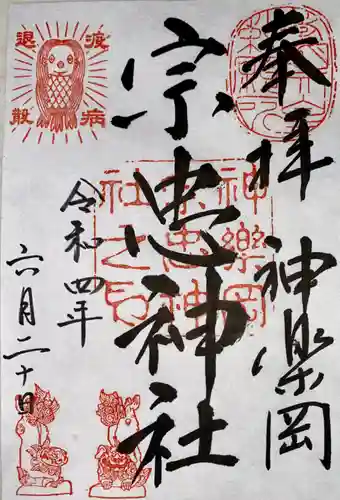 奉拝 神楽岡
宗忠神社
令和四年
六月二十日
疫病
退散
神樂岡
宗忠神
社之印